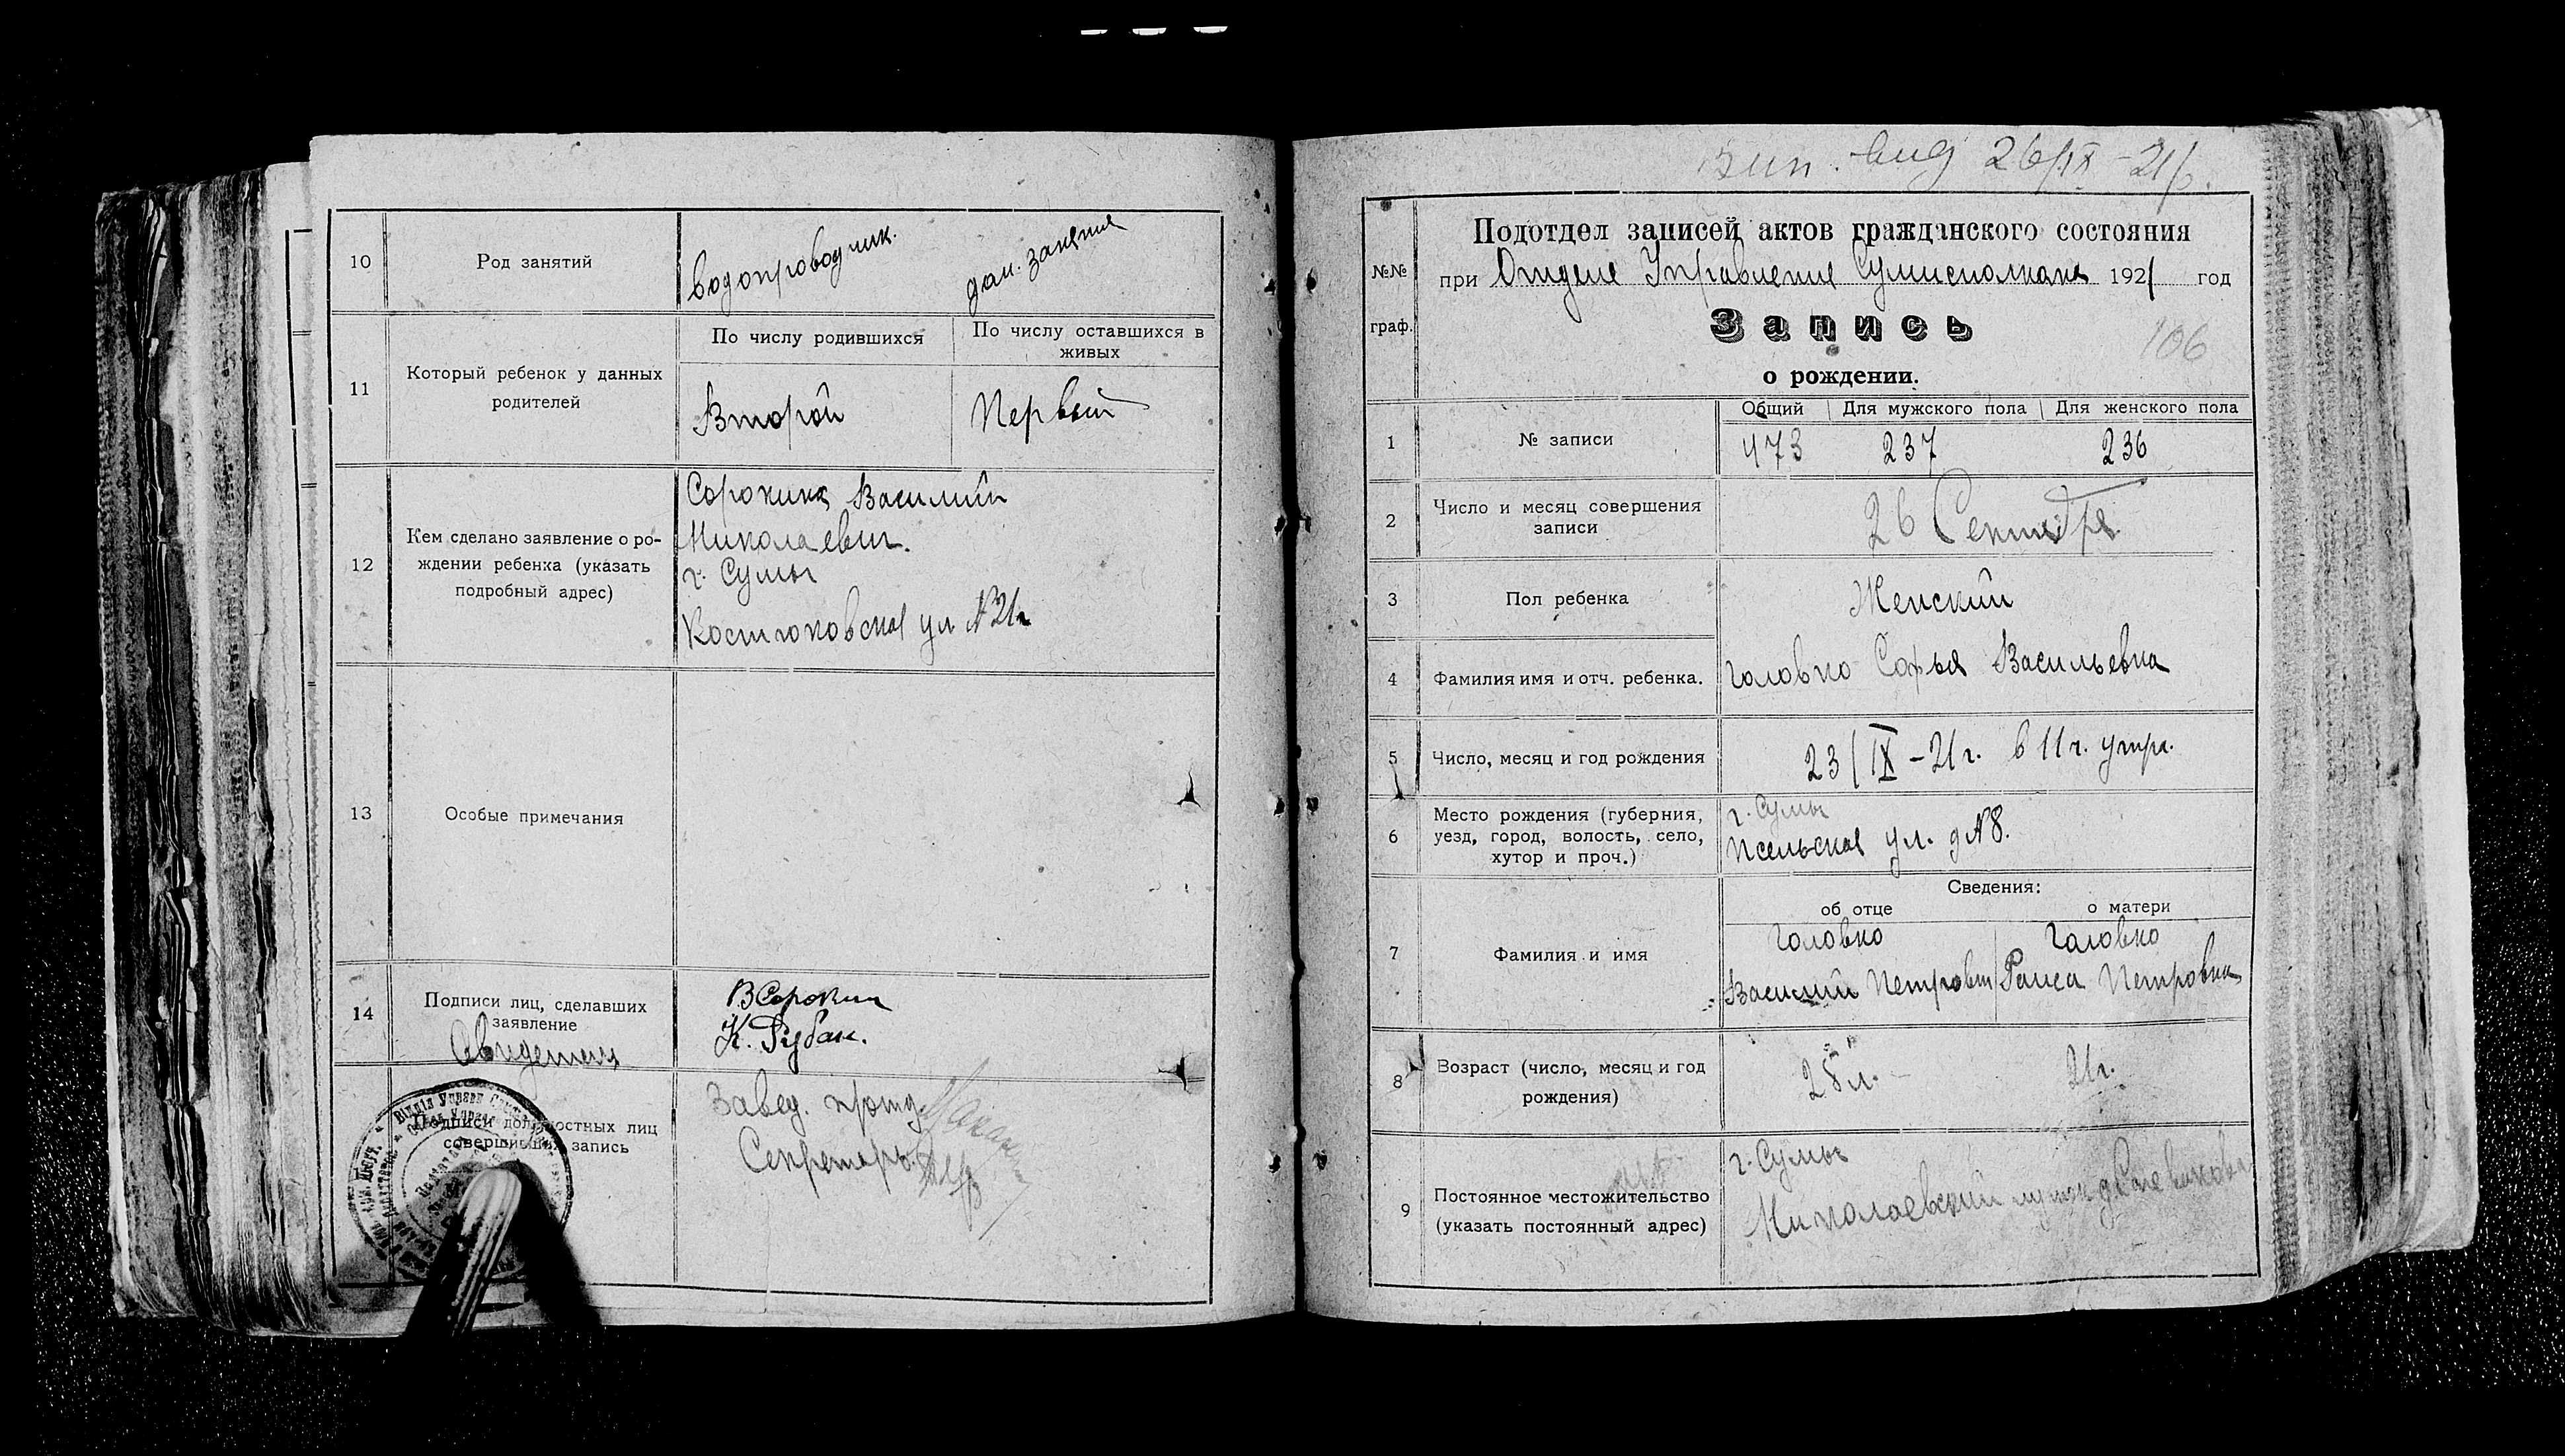 10
Род занятий
водопроводчик.
дом. занятия
11
Который ребенок у данных
родителей
По числу родившихся
По числу оставшихся в
живых
Второй
Первый
12
Кем сделано заявление о ро-
ждении ребенка (указать
подробный адрес)
Сорокина Василий
Николаевич.
г. Сумы
Костюковская ул №21
13
Особые примечания
14
Подписи лиц, сделавших
заявление
Свидетели
ВСорокин
К. Рубан.
Подписи должностных лиц
совершивших запись
Завед. подотд.
Секретарь
вид 26/IX-21
№№
граф.
Подотдел записей актов гражданского состояния
при Отделе Управления Сумисполкома 1921 год
Запись
106
о рождении.
1
№ записи
Общий
Для мужского пола
Для женского пола
473
237
236
2
Число и месяц совершения
записи
26 Сентября.
3
Пол ребенка
Женский
4
Фамилия имя и отч. ребенка.
Головко Софья Васильевна
5
Число, месяц и год рождения
23/IX-21г. в 11 ч. утра.
6
Место рождения (губерния,
уезд, город, волость, село,
хутор и проч.)
г. Сумы
Псельская ул. д №8.
7
Фамилия и имя
Сведения:
об отце
о матери
Головко
Василий Петрович
Головко
Раиса Петровна
8
Возраст (число, месяц и год
рождения)
25 л.
21 г.
9
Постоянное местожительство
(указать постоянный адрес)
г. Сумы
Николаевский